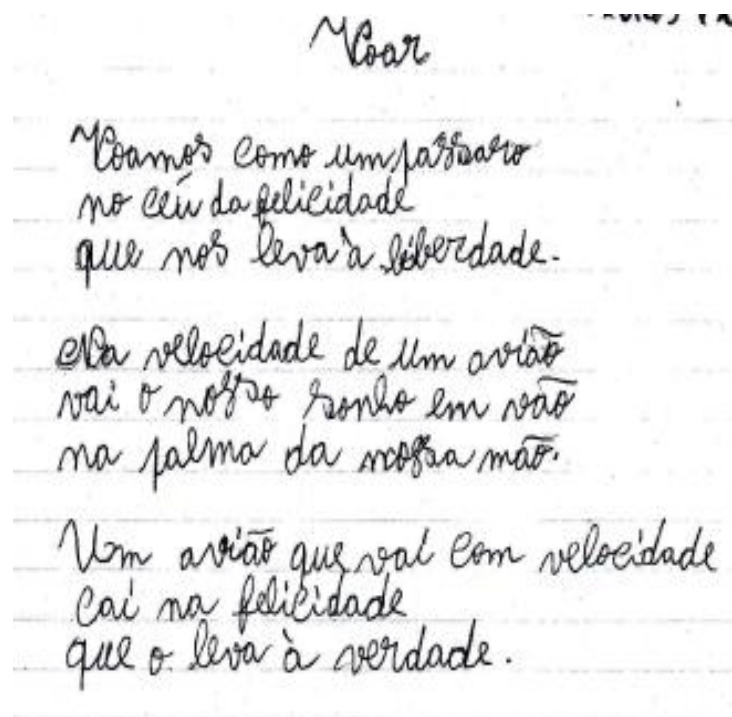 Voar
Voamos como um pássaro
no céu da felicidade
que nos leva à liberdade.
Na velocidade de um avião
vai o nosso sonho em vão
na palma da nossa mão.
Um avião que vai com velocidade
cai na felicidade
que o leva à verdade.